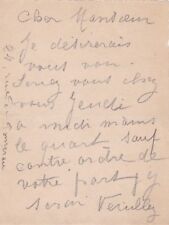 Cher Monsieur
Je désirerais
vous voir.
Serez vous chez
vous jeudi
à midi moins
le quart sauf
contre ordre de
votre part j'y
serai